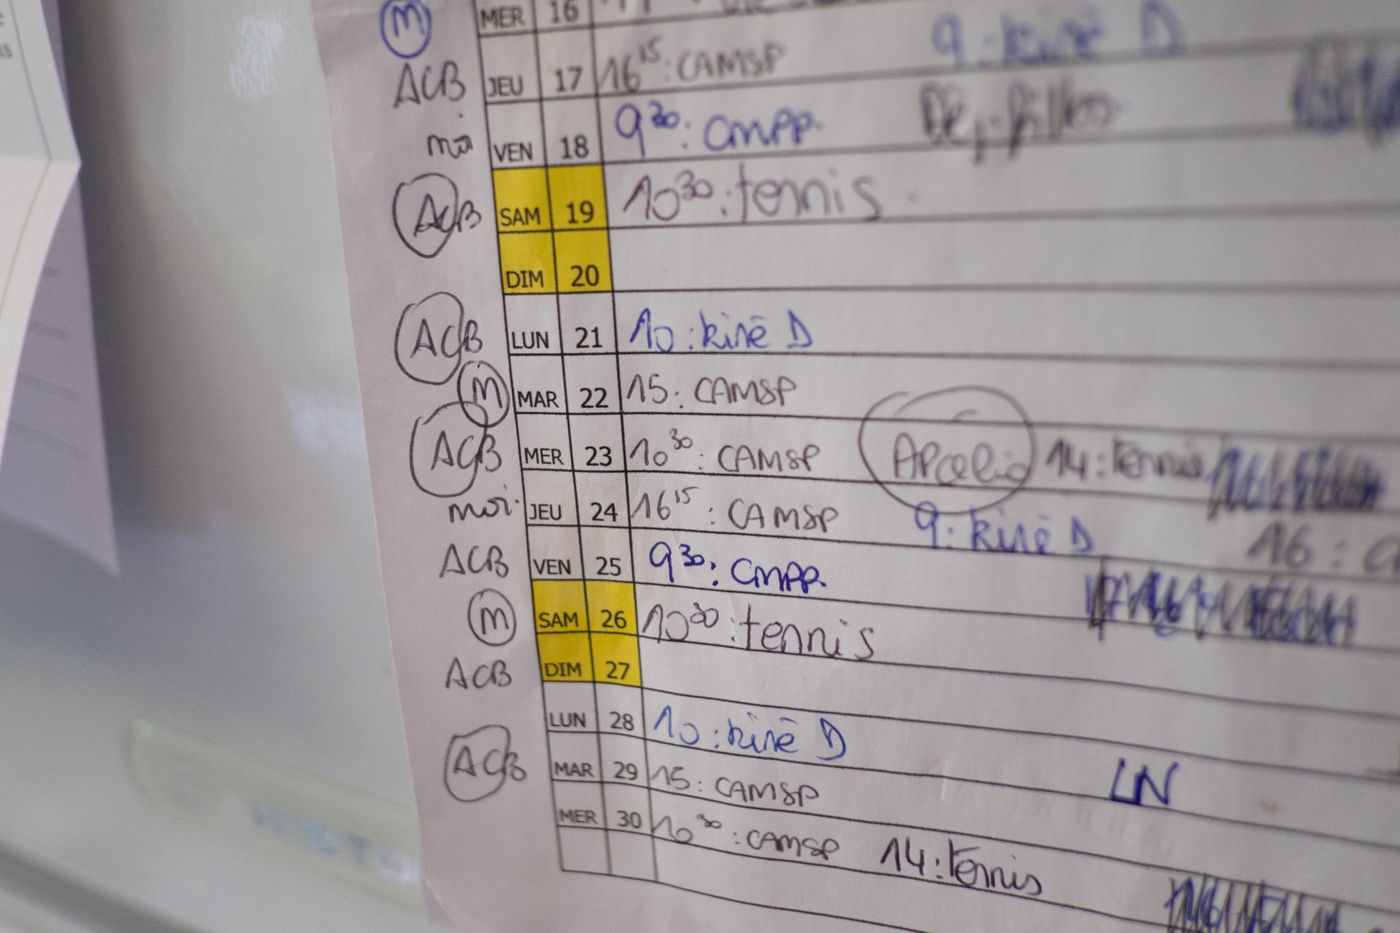 M MER 16 9 : kiné D
ACB JEU 17 16 15 : CAMSP
moi VEN 18 9 30 : CMPP.
ACB SAM 19 10 30 : tennis
DIM 20
ACB LUN 21 10 : kiné D
M MAR 22 15 : CAMSP
ACB MER 23 10 30 : CAMSP 14 : tennis
moi JEU 24 16 15 : CAMSP 9 : kiné D 16 : C
ACB VEN 25 9 30 : CMPP.
M SAM 26 10 30 : tennis
ACB DIM 27
LUN 28 10 : kiné D
ACB MAR 29 15 : CAMSP LN
MER 30 10 30 : CAMSP 14 : tennis